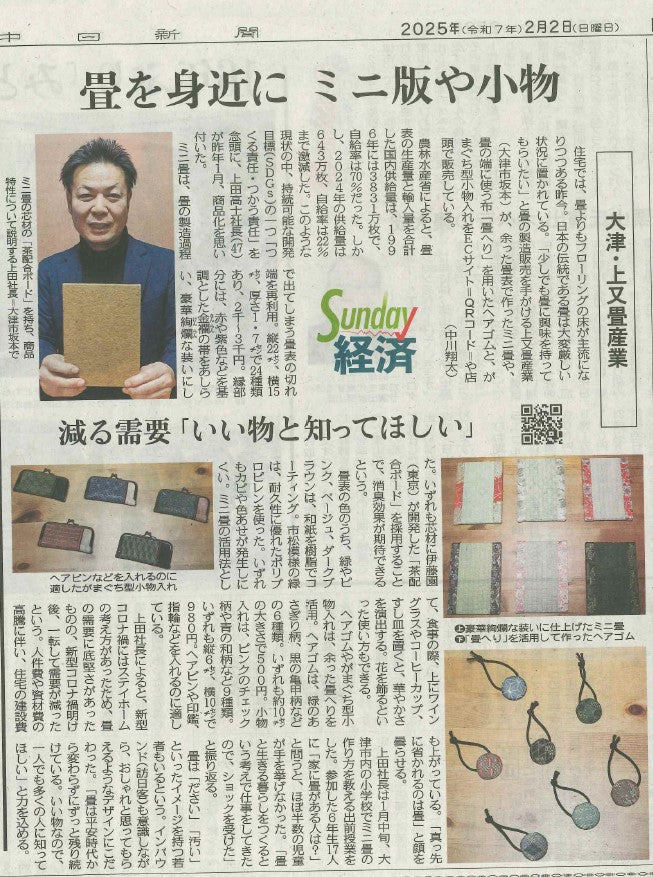 中日新聞
2025年(令和7年)2月2日(日曜日)
畳を身近に ミニ版や小物
大津・上又畳産業
住宅では、畳よりもフローリングの床が主流にな
りつつある昨今。日本の伝統である畳は大変厳しい
状況に置かれている。「少しでも畳に興味を持って
もらいたい」と畳の製造販売を手がける上又畳産業
(大津市坂本)が、余った畳表で作ったミニ畳や、
畳の端に使う布「畳へり」を用いたヘアゴムと、が
まぐち型小物入れをECサイト=QRコード=や店
頭で販売している。
(中川翔太)
農林水産省によると、畳
表の生産量と輸入量を合計
した国内供給量は、199
6年には3831万枚で、
自給率は70%だった。しか
し、2024年の供給量は
643万枚、自給率は22%
まで激減した。このような
現状の中、持続可能な開発
目標(SDGs)の一つ「つ
くる責任・つかう責任」を
念頭に、上田高士社長(47)
が昨年1月、商品化を思い
付いた。
ミニ畳は、畳の製造過程
で出てしまう畳表の切れ
端を再利用。縦22㌢、横15
㌢、厚さ1・7㌢で24種類
あり、2千～3千円。縁部
分には、赤や紫色などを基
調とした金襴の帯をあしら
い、豪華絢爛な装いにし
ミニ畳の芯材の「茶配合ボード」を持ち、商品
特性について説明する上田社長=大津市坂本で
Sunday
経済
減る需要「いい物と知ってほしい」
た。いずれも芯材に伊藤園
(東京)が開発した「茶配
合ボード」を採用すること
で、消臭効果が期待できる
という。
畳表の色のうち、緑やピ
ンク、ベージュ、ダークブ
ラウンは、和紙を樹脂でコ
ーティング。市松模様の緑
は、耐久性に優れたポリプ
ロピレンを使った。いずれ
もカビや色あせが発生しに
くい。ミニ畳の活用法とし
て、食事の際、上にワイン
グラスやコーヒーカップ、
すし皿を置くと、華やかさ
を演出する。花を飾るとい
った使い方もできる。
ヘアゴムやがまぐち型小
物入れは、余った畳へりを
活用。ヘアゴムは、緑のあ
さぎり柄、黒の亀甲柄など
の6種類。いずれも約10㌢
の大きさで500円。小物
入れは、ピンクのチェック
柄や青の和柄など9種類。
いずれも縦6㌢、横10㌢で
980円。ヘアピンや印鑑、
指輪などを入れるのに適し
ている。
上田社長によると、新型
コロナ禍にはステイホーム
の考え方があったため、畳
の需要に底堅さがあった
ものの、新型コロナ禍明け
後、一転して需要が減った
という。人件費や資材費の
高騰に伴い、住宅の建設費
も上がっている。「真っ先
に省かれるのは畳」と顔を
曇らせる。
上田社長は1月中旬、大
津市内の小学校でミニ畳の
作り方を教える出前授業を
した。参加した6年生17人
に「家に畳がある人は?」
と問うと、ほぼ半数の児童
が手を挙げなかった。「畳
と生きる暮らしをつくると
いう考えで仕事をしてきた
ので、ショックを受けた」
と振り返る。
畳は「ださい」「汚い」
といったイメージを持つ若
者もいるという。インバウ
ンド(訪日客)も意識しなが
ら、おしゃれと思ってもら
えるようなデザインにこだ
わった。「畳は平安時代か
ら変わらずにずっと残り続
けている。いい物なので、
一人でも多くの人に知って
ほしい」と力を込める。
ヘアピンなどを入れるのに
適したがまぐち型小物入れ
㊤豪華絢爛な装いに仕上げたミニ畳
㊦「畳へり」を活用して作ったヘアゴム